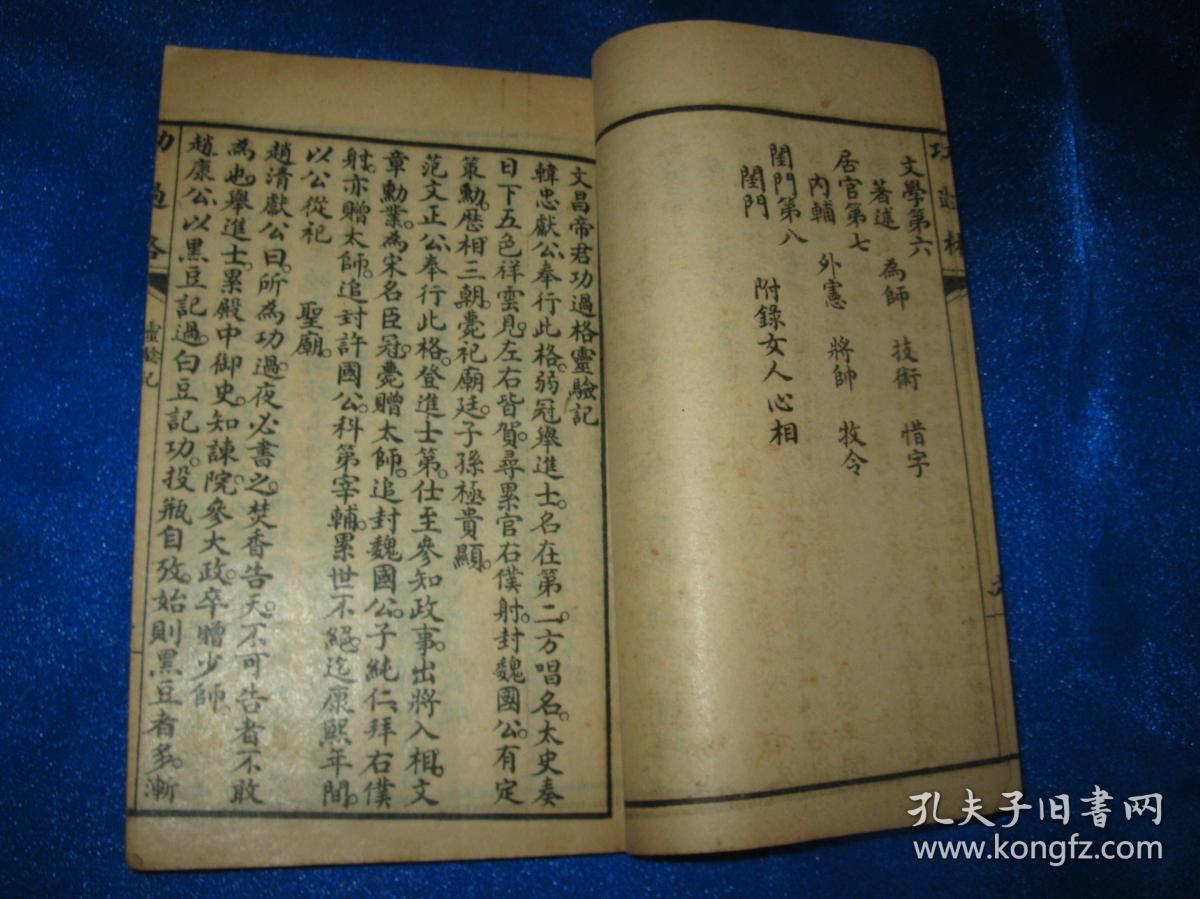 文學第六
著述　為師　技術　惜字
居官第七
內輔　外憲　將帥　牧令
閨門第八
閨門　附錄女人心相
文昌帝君功過格靈驗記
韓忠獻公奉行此格。弱冠舉進士。名在第二。方唱名。太史奏
日下五色祥雲見。左右皆賀。尋累官右僕射。封魏國公。有定
策勳。歷相三朝。薨祀廟廷。子孫極貴顯。
范文正公奉行此格。登進士第。仕至參知政事。出將入相。文
章勳業。為宋名臣冠。薨贈太師。追封魏國公。子純仁。拜右僕
射。亦贈太師。追封許國公。科第宰輔。累世不絕。迄康熙年間。
以公從祀　聖廟。
趙清獻公曰。所為功過。夜必書之。焚香告天。不可告者不敢
為也。舉進士。累殿中御史。知諫院。參大政。卒贈少師
趙康公。以黑豆記過。白豆記功。投瓶自攷。始則黑豆者多。漸
功過格
靈驗記
孔夫子旧书网
www.kongfz.com